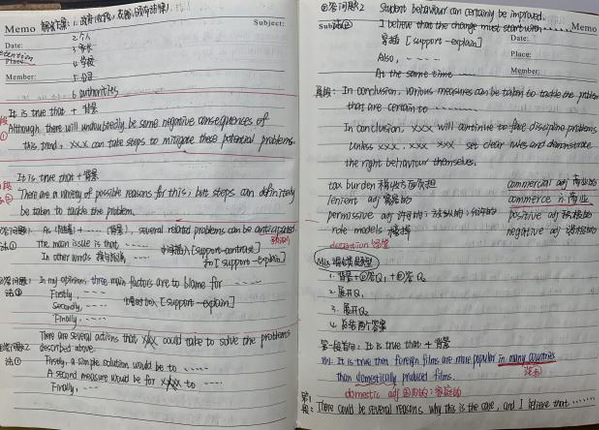 Memo
Subject:
Date:
2.个人
3.家长
Place:
4.学校
Member:
5.公司
6.authorities
It is true that + 背景
Although there will undoubtedly be some negative consequences of
this trend, xxx can take steps to mitigate these potential problems.
It is true that + 背景
There are a variety of possible reasons for this, but steps can definitely
be taken to tackle the problem.
several related problems can be anticipated
The main issue is that
[support-contrast]
In other words
[support-explain]
In my opinion, three main factors are to blame for
Firstly,
[support-explain]
Secondly,
Finally,
There are several actions that xxx could take to solve the problems
described above.
Firstly, a simple solution would be to
A second measure would be for xxxx to
Finally,
Student behaviour can certainly be improved.
I believe that the change must start with
Memo
[support-explain]
Date:
Also,
Place:
At the same time
Member:
In conclusion, various measures can be taken to tackle the problem
that are certain to
In conclusion, xxx will continue to face discipline problems
unless xxx, xxx xxx set clear rules and demonstrate
the right behaviour themselves.
tax burden
commercial adj 商业的
lenient adj 宽容的
commerce n 商业
permissive adj
positive adj 积极的
role models 榜样
negative adj 消极的
1. 背景+①答Q₁+②答Q₂
2. 展开Q₁
3. 展开Q₂
4. 总结两个答案
It is true that + 背景
It is true that foreign films are more popular in many countries
than domestically produced films.
domestic adj
There could be several reasons why this is the case, and I believe that